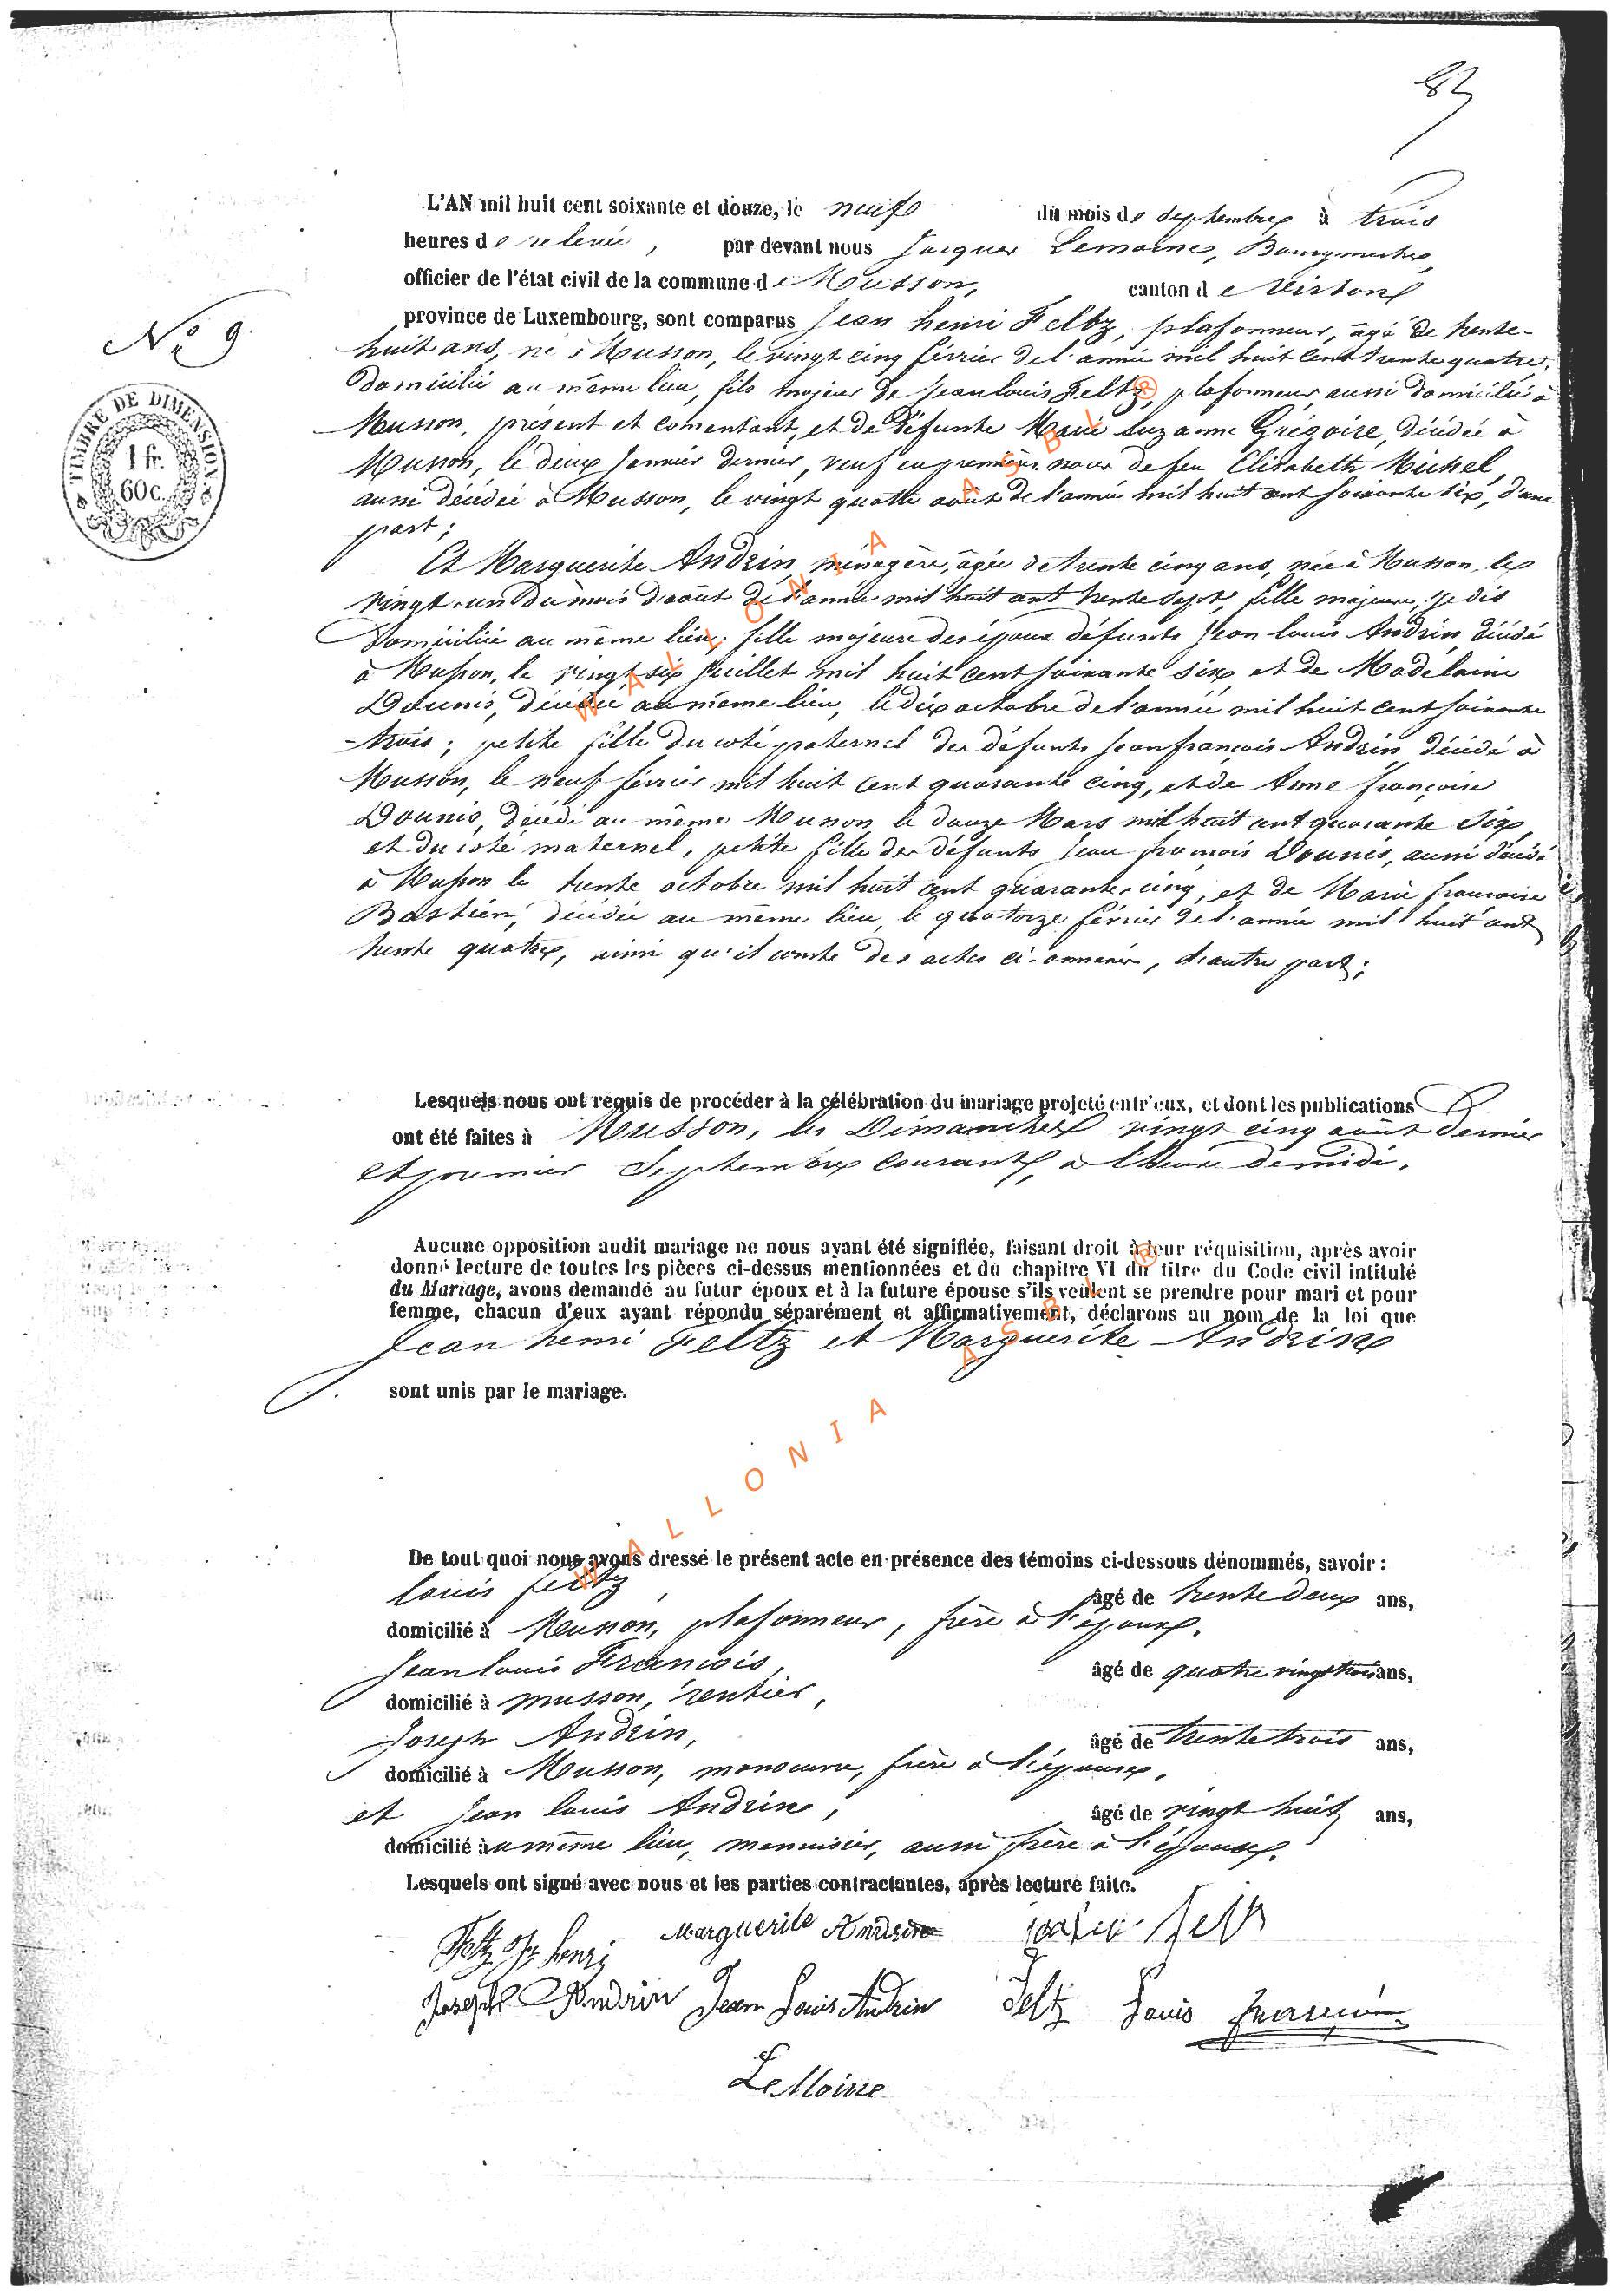 83
L'AN mil huit cent soixante et douze, le neuf du mois de septembre à trois
heures de relevée, par devant nous Jacques Lemoine, Bourgmestre,
officier de l'état civil de la commune de Musson, canton de Virton
province de Luxembourg, sont comparus Jean henri Feltz, plafonneur, âgé de trente-
No 9
huit ans, né à Musson, le vingt cinq février de l'année mil huit cent trente quatre,
domicilié au même lieu, fils majeur de Jean louis Feltz, plafonneur, aussi domicilié à
Musson, présent et consentant, et de défunte Marie Suzanne Grégoire, décédée à
Musson, le deux Janvier dernier, veuf en premières noces de feu Elisabeth Michel,
aussi décédée à Musson, le vingt quatre août de l'année mil huit cent soixante six, d'une
part;
TIMBRE DE DIMENSION
1 fr.
60 c.
Et Marguerite Andrin, ménagère, âgée de trente cinq ans, née à Musson, le
vingt-un du mois d'août de l'année mil huit cent trente sept, fille majeure, je dis
Domiciliée au même lieu, fille majeure des époux défunts Jean louis Andrin décédé
à Musson, le vingt six Juillet mil huit cent soixante six et de Madelaine
Dounis, décédée au même lieu, le dix octobre de l'année mil huit cent soixante
-trois; petite fille du coté paternel des défunts Jean françois Andrin, décédé à
Musson, le neuf février mil huit cent quarante cinq, et de Anne françoise
Dounis, décédé au même Musson le douze Mars mil huit cent quarante six,
et du coté maternel, petite fille des défunts Jean françois Dounis, aussi décédé
à Musson le trente octobre mil huit cent quarante-cinq, et de Marie françoise
Bastien, décédée au même lieu, le quatorze février de l'année mil huit cent
trente quatre, ainsi qu'il conste des actes ci-annexés, d'autre part;
Lesquels nous ont requis de procéder à la célébration du mariage projeté entr'eux, et dont les publications
ont été faites à Musson, les Dimanches vingt cinq août dernier
et premier Septembre courant, à l'heure de midi.
Aucune opposition audit mariage ne nous ayant été signifiée, faisant droit à leur réquisition, après avoir
donné lecture de toutes les pièces ci-dessus mentionnées et du chapitre VI du titre du Code civil intitulé
du Mariage, avons demandé au futur époux et à la future épouse s'ils veulent se prendre pour mari et pour
femme, chacun d'eux ayant répondu séparément et affirmativement, déclarons au nom de la loi que
Jean henri Feltz et Marguerite Andrin
sont unis par le mariage.
De tout quoi nous avons dressé le présent acte en présence des témoins ci-dessous dénommés, savoir :
louis feltz, âgé de trente deux ans,
domicilié à Musson, plafonneur, frère à l'époux.
Jean louis François, âgé de quatre vingt trois ans,
domicilié à musson, rentier,
Joseph Andrin, âgé de trente trois ans,
domicilié à Musson, manoeuvre, frère à l'épouse,
et Jean louis Andrin, âgé de vingt huit ans,
domicilié au même lieu, menuisier, aussi frère à l'épouse.
Lesquels ont signé avec nous et les parties contractantes, après lecture faite.
Feltz Jn henri Marguerite Andrin
Joseph Andrin Jean Louis Andrin Feltz Louis françois
LeMoine
WALLONIA ASBL ®
WALLONIA ASBL ®